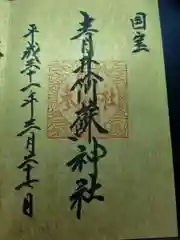 国宝
青井阿蘇神社
平成三十一年三月二十七日